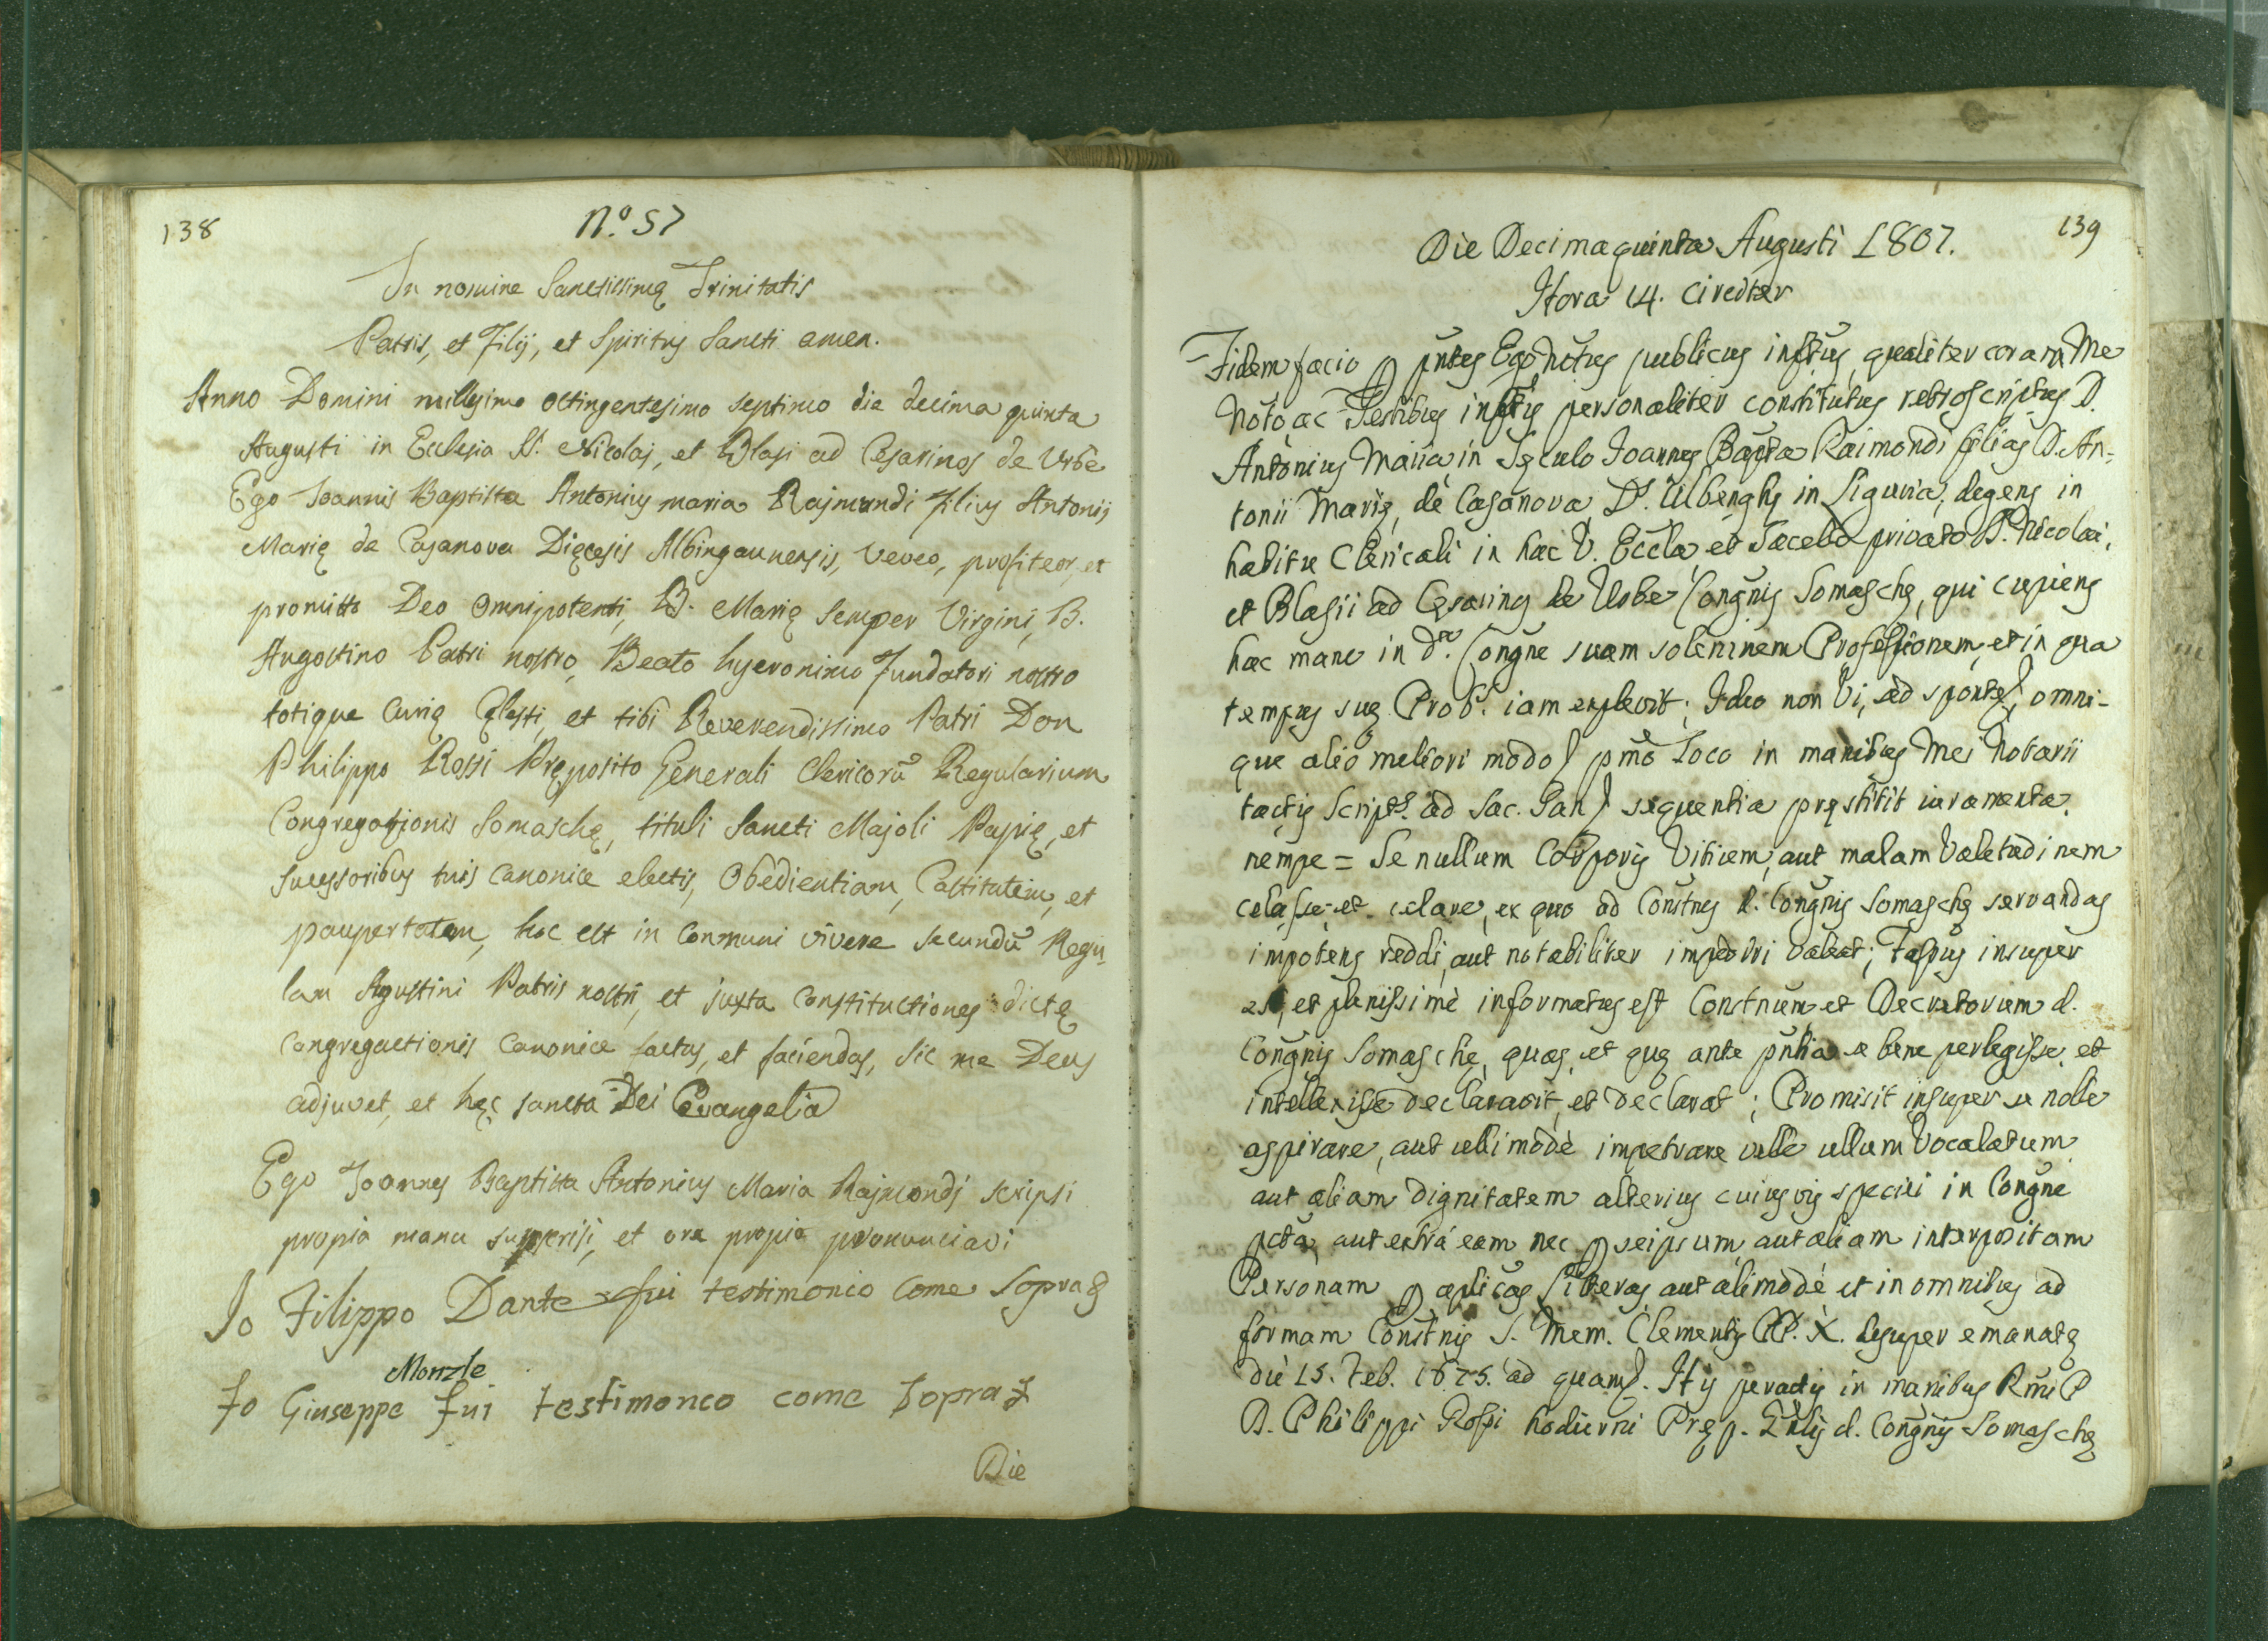 138
N.º 57
In nomine Sanctissimę Trinitatis
Patris, et Filij, et Spiritus Sancti amen.
Anno Domini millesimo octingentesimo septimo die decima quinta
Augusti in Ecclesia SS. Nicolaj, et Blasj ad Cesarinos de Urbe
Ego Joannis Baptista Antonius maria Rajmundi Filius Antonij
Marię de Casanova Dięcesis Albingaunensis, Veveo, profiteor, et
promitto Deo Omnipotenti, B. Marię semper Virgini, B.
Augostino Patri nostro, Beato hyeronimo Fundatori nostro
totique Curię Cęlesti, et tibi Reverendissimo Patri Don
Philippo Rossi Pręposito Generali Clericorũ Regularium
Congregationis Somaschę, tituli Sancti Majoli Papię, et
sucessoribus tuis canonice electis, Obedientiam, Castitatem, et
paupertatem, hoc est in Conmuni vivere secundũ Regu-
lam Agustini Patris nostri, et juxta Constituctiones dictę
Congregactionis Canonice factas, et faciendas, sic me Deus
adjuvet, et hęc sancta Dei Evangelia
Ego Joannes Baptista Antonius Maria Rajmondj scripsi
propia manu supperisi, et ore propio pronunciavi
Io Filippo Dante fui testimonio come Sopra
Monzle
Io Giuseppe fui testimonco come Sopra
Die
139
Die Decimaquinta Augusti 1807.
Hora 14. Circiter
Fidem facio p pñtes Ego Notũs publicus infrũs, qualiter coram Me
Notõ ac Testibus infris personaliter constitutus retroscriptus D.
Antonius Maria in Sęculo Joannes Bapta Raimondi filius D. An-
tonii Marię, de Casanova Ds. Albenghę in Liguria, degens in
habitu Clericali in hac V. Eccla, et Sacello privato SS. Nicolai,
et Blasii ad Cęsarinos de Urbe Congñis Somaschę, qui cupiens
hac mane in da. Congne suam solemnem Professionem, et in qua
tempus suę Probs. iam explevit; Ideo non Vi, sed sponte, omni-
que alio meliori modo pmõ Loco in manibus Mei Notarii
tactis Scripts. ad Sac. San sequentia pręstitit iuramenta.
nempe = Se nullum Corporis Vitium, aut malam Valetudinem
celasse, et celare, ex quo ad Constnes d. Congñis Somaschę servandas
impotens reddi, aut notabiliter impediri valeat; fassus insuper
est, et plenissimè informatus est Constnum, et Decretorum d.
Congñis Somasche, quas, et quę ante pñtia se bene perlegisse, et
intellexisse declaravit, et declarat; Promisit insuper se nolle
aspirare, aut ullimodè impetrare velle ullum Vocalatum
aut aliam Dignitatem alterius cuiusvis speciei in Congñe
pcta, aut extrá eam nec p seipsum, aut aliam interpositam
Personam p aplicas Litteras aut alimodè et in omnibus ad
formam Constnis S. Mem. Clementis PP. X. desuper emanatę
diè 15. Feb. 1675. ad quam. His peractis in manibus Rmi P
D. Philippi Rossi hodierni Pręp. Gnlis d. Congñis Somaschę